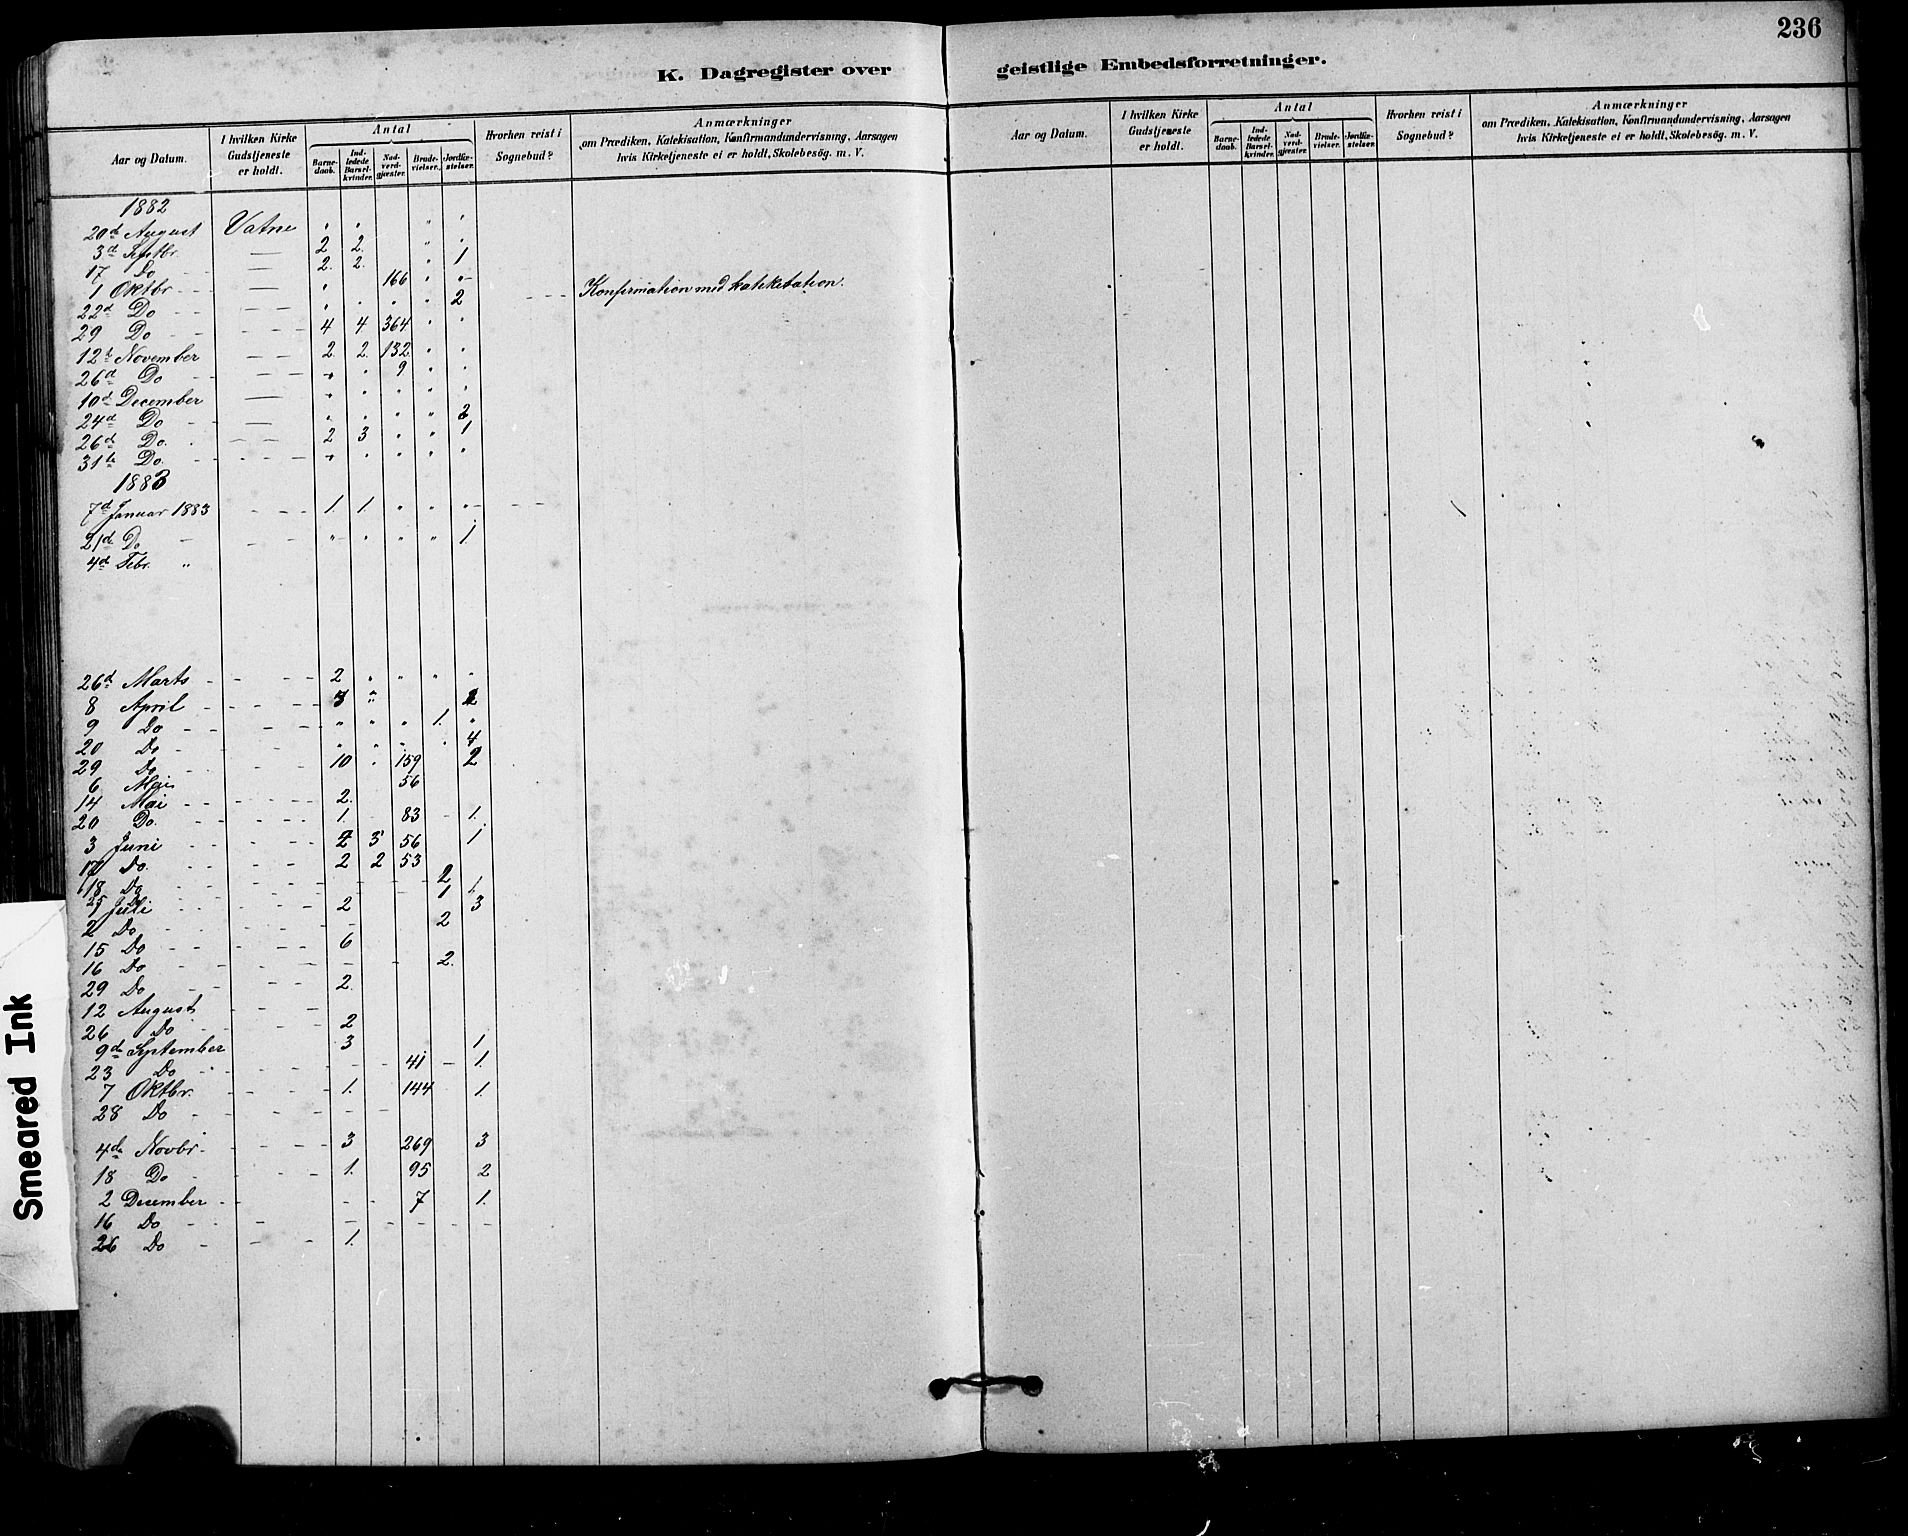 236
K. Dagregister over geistlige Embedsforretninger.
Aar og Datum. | I hvilken Kirke Gudstjeneste er holdt. | Antal | Barnedaab. | Indledede Barselkvinder. | Nadverdgjæster. | Brudevielser. | Jordfæstelser. | Hvorhen reist i Sognebud? | Anmærkninger om Prædiken, Katekisation, Konfirmandundervisning, Aarsagen hvis Kirketjeneste ei er holdt, Skolebesøg. m. V.
Aar og Datum. | I hvilken Kirke Gudstjeneste er holdt. | Antal | Barnedaab. | Indledede Barselkvinder. | Nadverdgjæster. | Brudevielser. | Jordfæstelser. | Hvorhen reist i Sognebud? | Anmærkninger om Prædiken, Katekisation, Konfirmandundervisning, Aarsagen hvis Kirketjeneste ei er holdt, Skolebesøg. m. V.
1882
20d August Vatne " " " "
3d Septbr. — 2 2. " "
17 Do — 2. 2. " 1
1 Oktbr — " 166 " " Konfirmation med katekisation.
22d Do — " " " " 2
29 Do - - 4 4. 364 " "
12te November - - 2 2. 132 " "
26d Do - - " " 9 " "
10d December — " " " " "
24d Do — " " " " 2
26d Do. - - 2 3 " " 1
31te Do. - - " " " " "
1883
7d Januar 1883 - - 1. 1. " " "
21d Do - - " " " " 1
4d Febr. "
26d Marts - - 2 " " " "
8 April - - 3 " 2
9 Do - - " " " 1. "
20 Do - - " " " " 4
29 Do - - 10 " 159 2
6 Mai 56
14 Mai - - 2.
20 Do. - - 1. 83 - 1.
3 Juni - - 4 3 56 1
17 Do. - - 2 2 53
18 Do - - 2
Juli - - 2 3
2 Do - - 2
15 Do - - 6
16 Do - - 2.
29 Do - - 2.
12 August - -
26 Do - 2
9d September 3 1
23 Do - - 41 - 1.
7 Oktbr. - - 1. 144 1.
28 Do - -
4de Novbr. - - 3 269 3
18 Do - - 1. 95 2
2 Desember - - 7 1.
16 Do - -
26 Do - - 1.
Smeared Ink